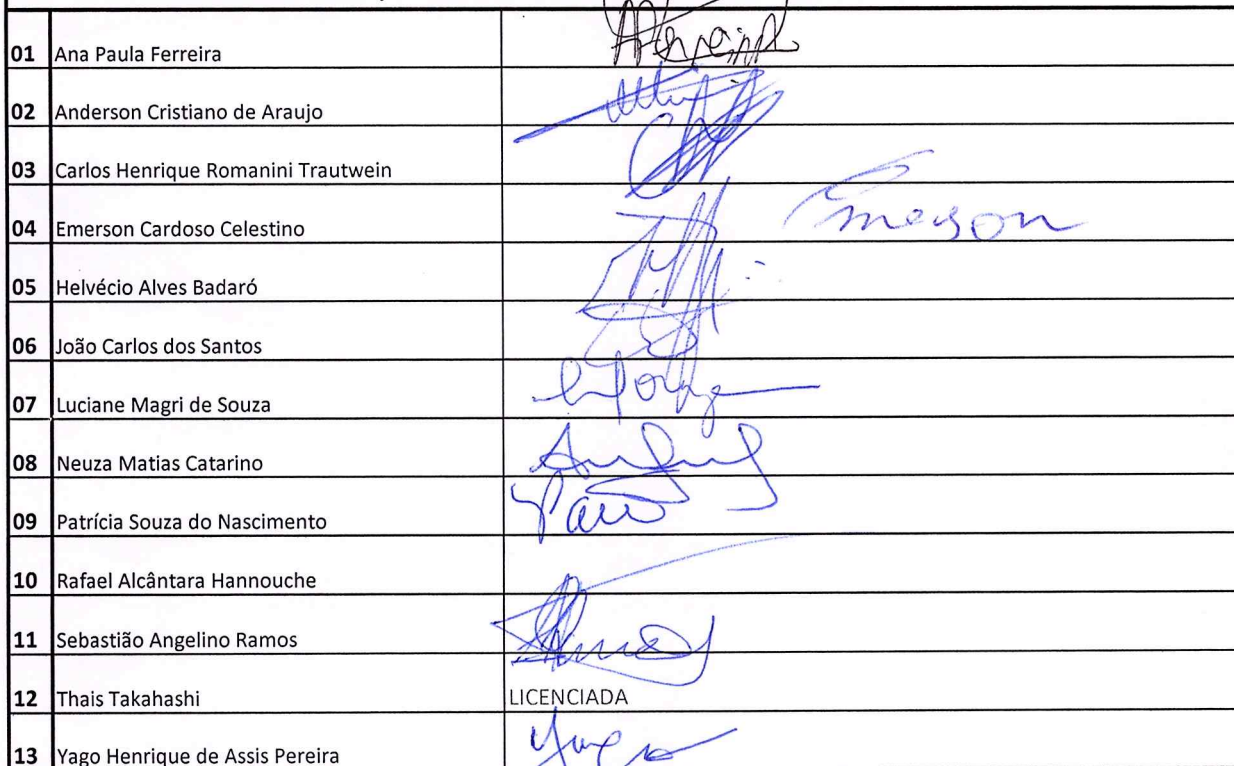 01 Ana Paula Ferreira
02 Anderson Cristiano de Araujo
03 Carlos Henrique Romanini Trautwein
04 Emerson Cardoso Celestino Emerson
05 Helvécio Alves Badaró
06 João Carlos dos Santos
07 Luciane Magri de Souza
08 Neuza Matias Catarino
09 Patrícia Souza do Nascimento
10 Rafael Alcântara Hannouche
11 Sebastião Angelino Ramos
12 Thais Takahashi LICENCIADA
13 Yago Henrique de Assis Pereira